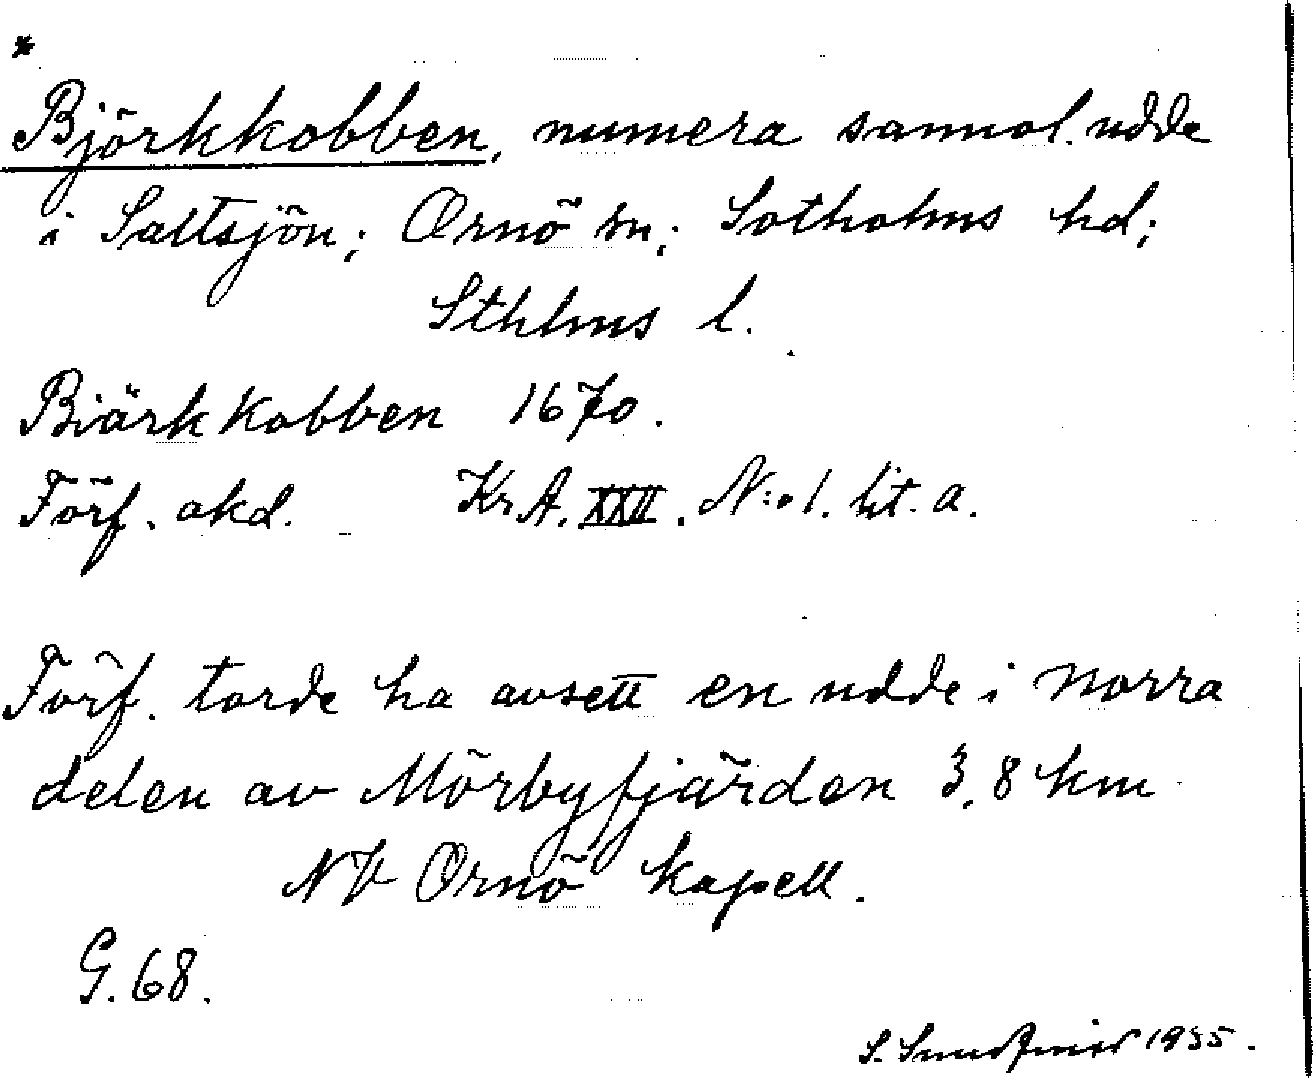 *
Björkkobben, numera sannol. udde
i Saltsjön; Ornö sn; Sotholms hd;
Sthlms l.
Biärkkobben 1670.
Förf. okd. KrA. XXII. N:o 1. lit. a.
Förf. torde ha avsett en udde i norra
delen av Mörbyfjärden 3,8 km
NV Ornö kapell.
G. 68.
S. 1935.